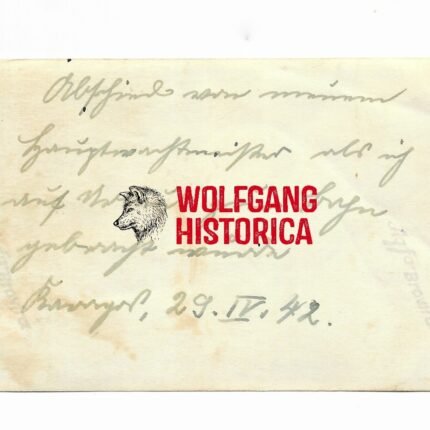 Abschied von meinem
Hauptwachtmeister als ich
auf
WOLFGANG
HISTORICA
gebracht wurde
29. IV. 42.